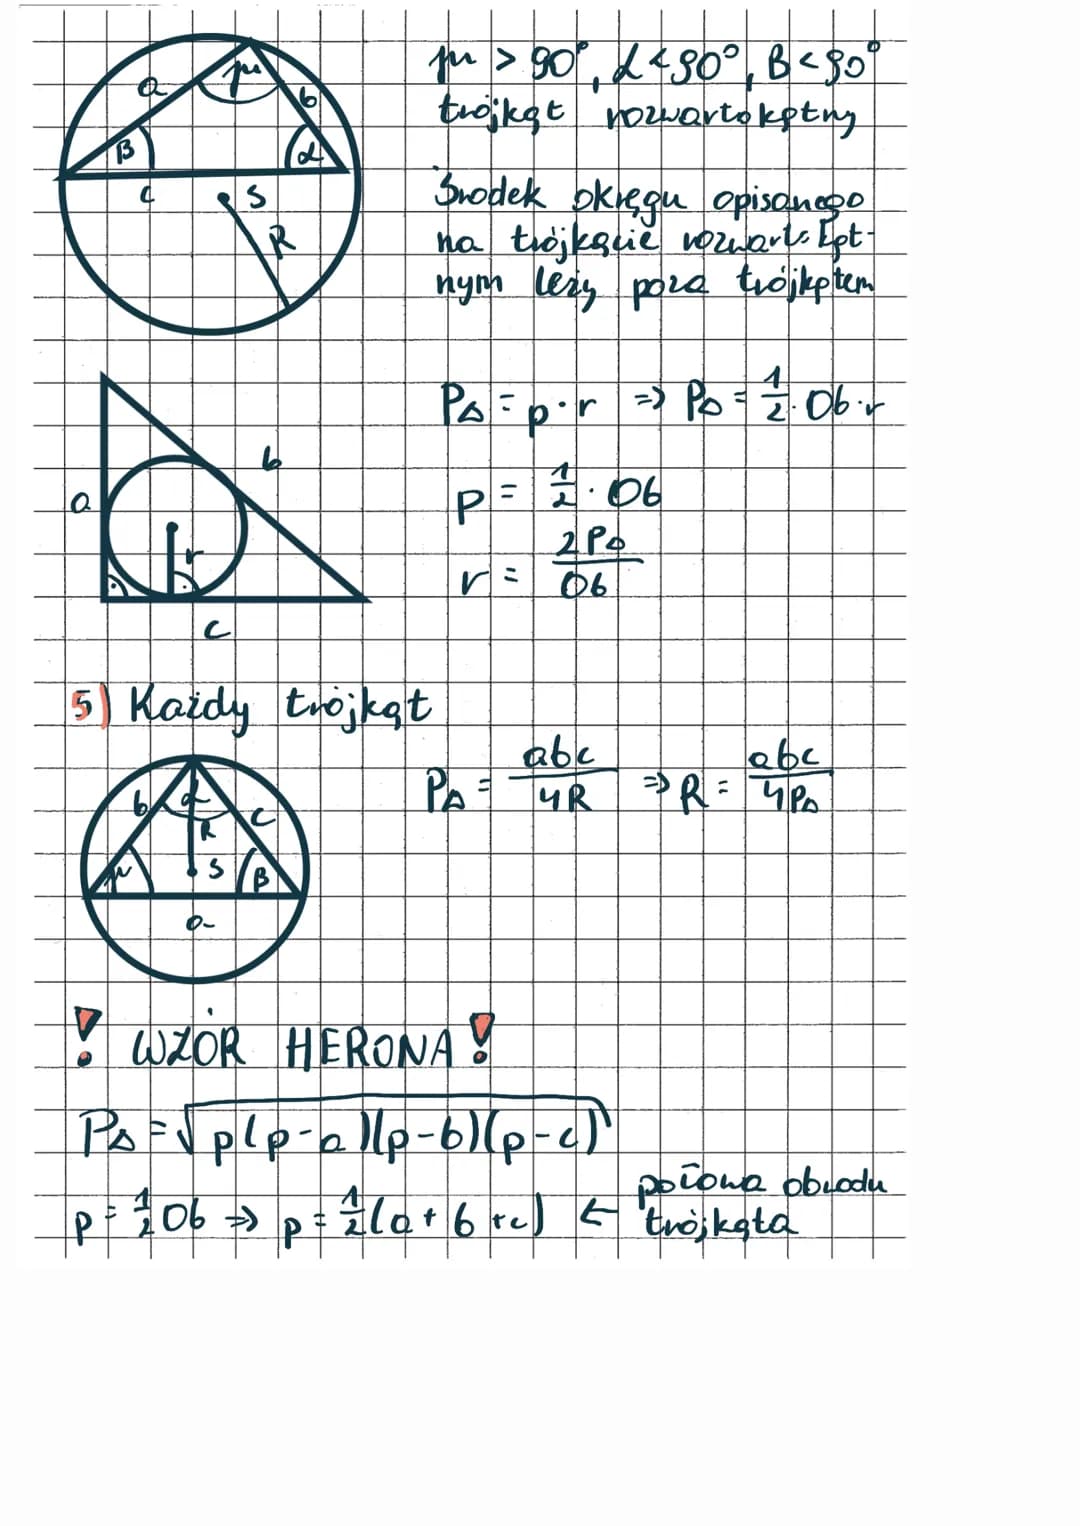 μ > 90°, α < 90°, β < 90°
trójkąt rozwartokątny
a
μ
b
β
α
c
S
R
Środek okręgu opisanego
na trójkącie rozwartokąt-
nym leży poza trójkątem
P△ = p · r => P△ = 1/2 · Ob · r
p = 1/2 · Ob
r = 2P△/Ob
a
b
r
c
5) Każdy trójkąt
P△ = abc/4R => R = abc/4P△
b
α
c
R
μ
S
β
a
! WZÓR HERONA!
P△ = √p(p-a)(p-b)(p-c)
p = 1/2 Ob => p = 1/2 (a + b + c) ← połowa obwodu
trójkąta